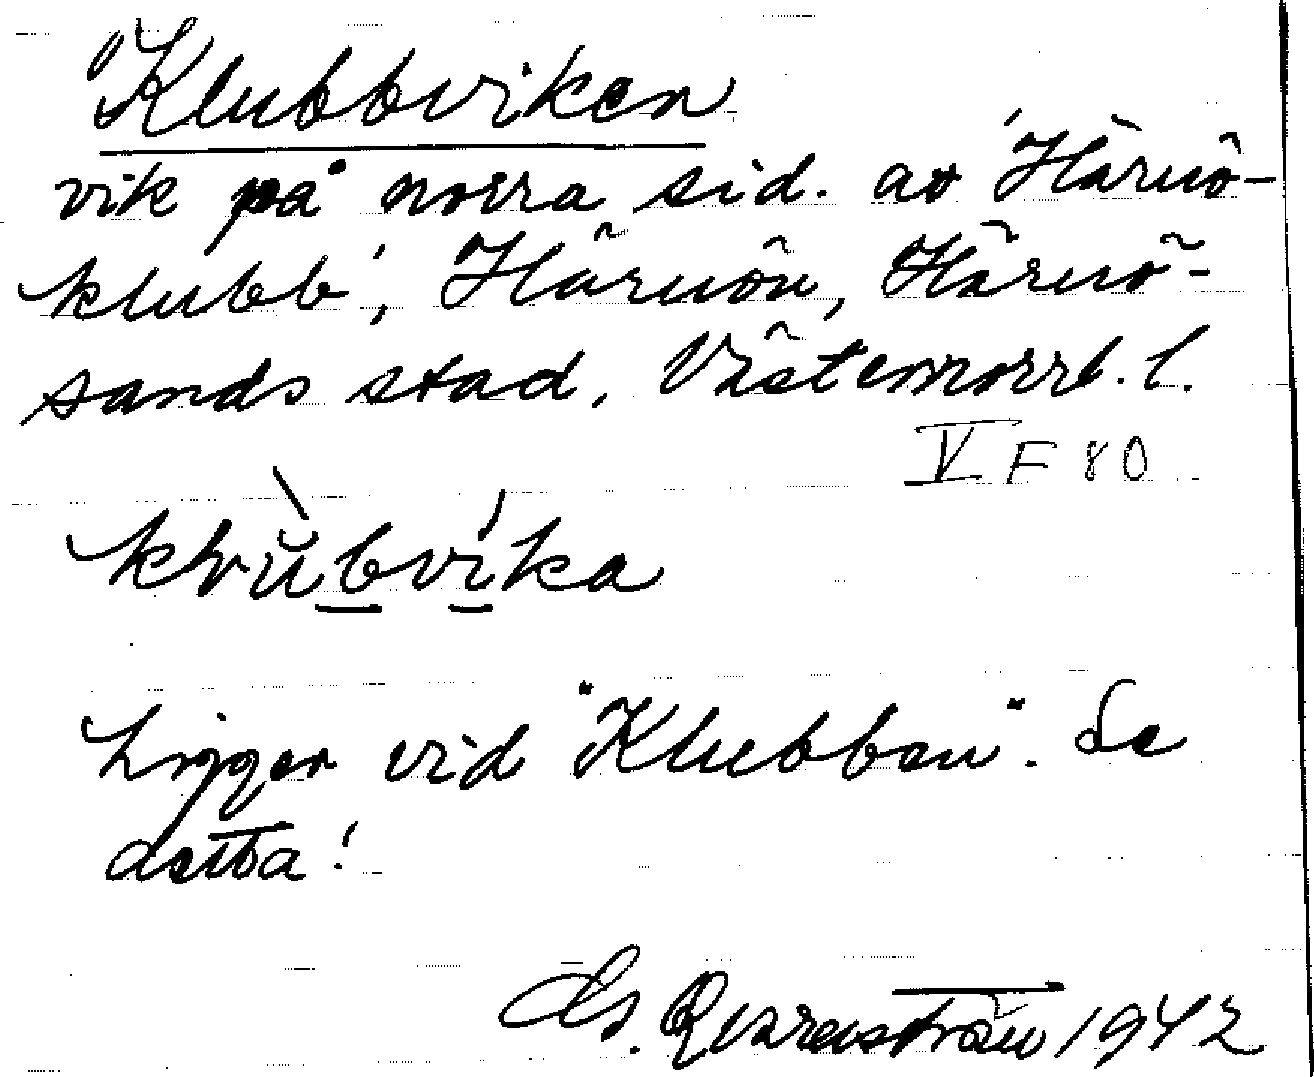 Klubbviken
vik på norra sid. av 'Härnö-
klubb', Härnön, Härnö-
sands stad, Västernorrl. l.
V F 80
Ligger vid "Klubben". Se
detta!
1942